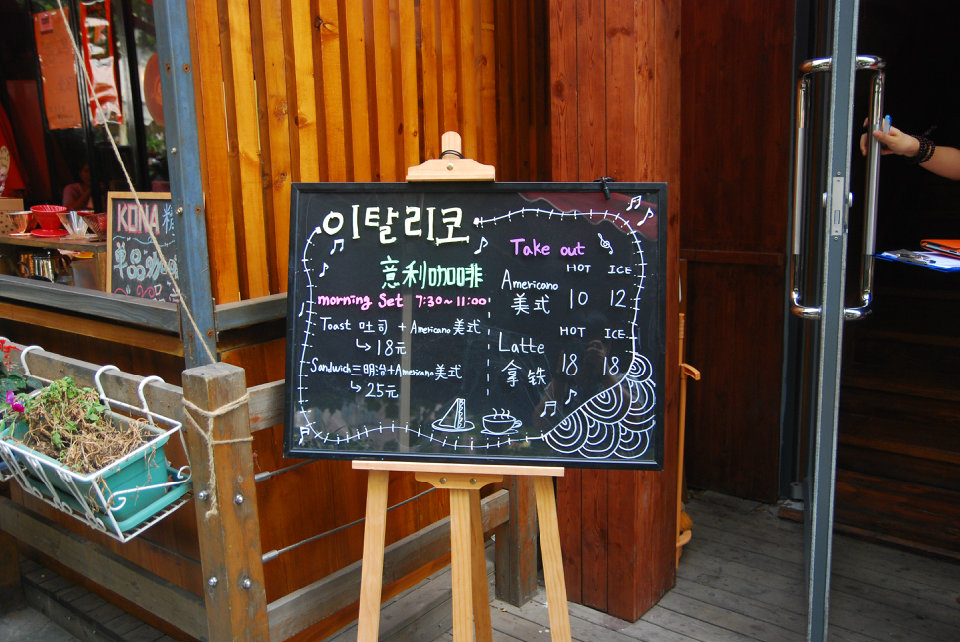 이탈리코
意利咖啡
morning Set 7:30~11:00
Toast 吐司 + Americano美式
↳ 18元
Sandwich三明治+Americano美式
↳ 25元
Take out
HOT ICE
Americano
美式 10 12
HOT ICE
Latte
拿铁 18 18
KONA
单品咖啡